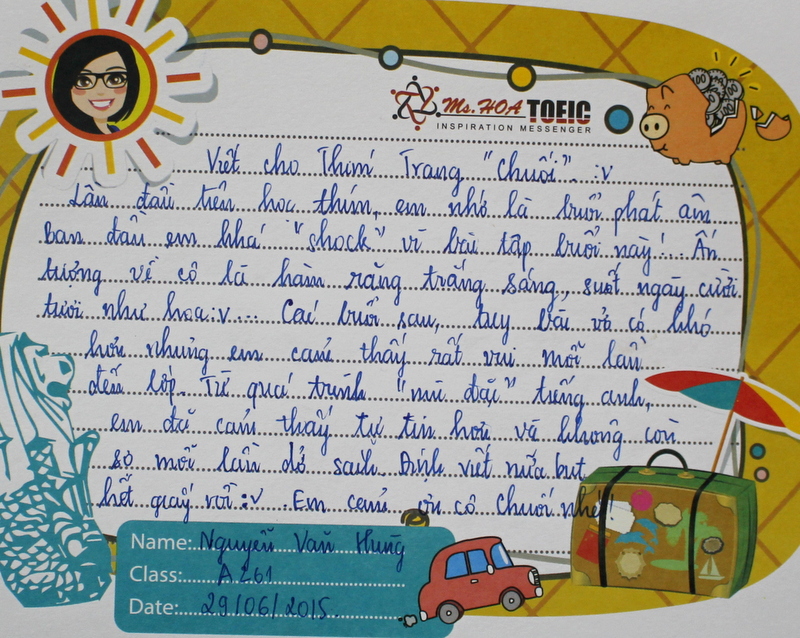 Ms. HOA TOEIC
INSPIRATION MESSENGER
Viết cho Thím Trang "Chuối". :v
Lần đầu tiên học thím, em nhớ là buổi phát âm
Ban đầu em khá "shock" vì bài tập buổi này!.. Ấn
tượng về cô là hàm răng trắng sáng, suốt ngày cười
tươi như hoa :v... Các buổi sau, tuy bài vở có khó
hơn nhưng em cảm thấy rất vui mỗi lần
đến lớp. Từ quá trình "mù đặc" tiếng anh,
em đã cảm thấy tự tin hơn và không còn
sợ mỗi lần dở sách. Định viết nữa but
hết giấy rồi :v. Em cảm ơn cô Chuối nhé!!
Name: Nguyễn Văn Hưng
Class: A261
Date: 29/06/2015